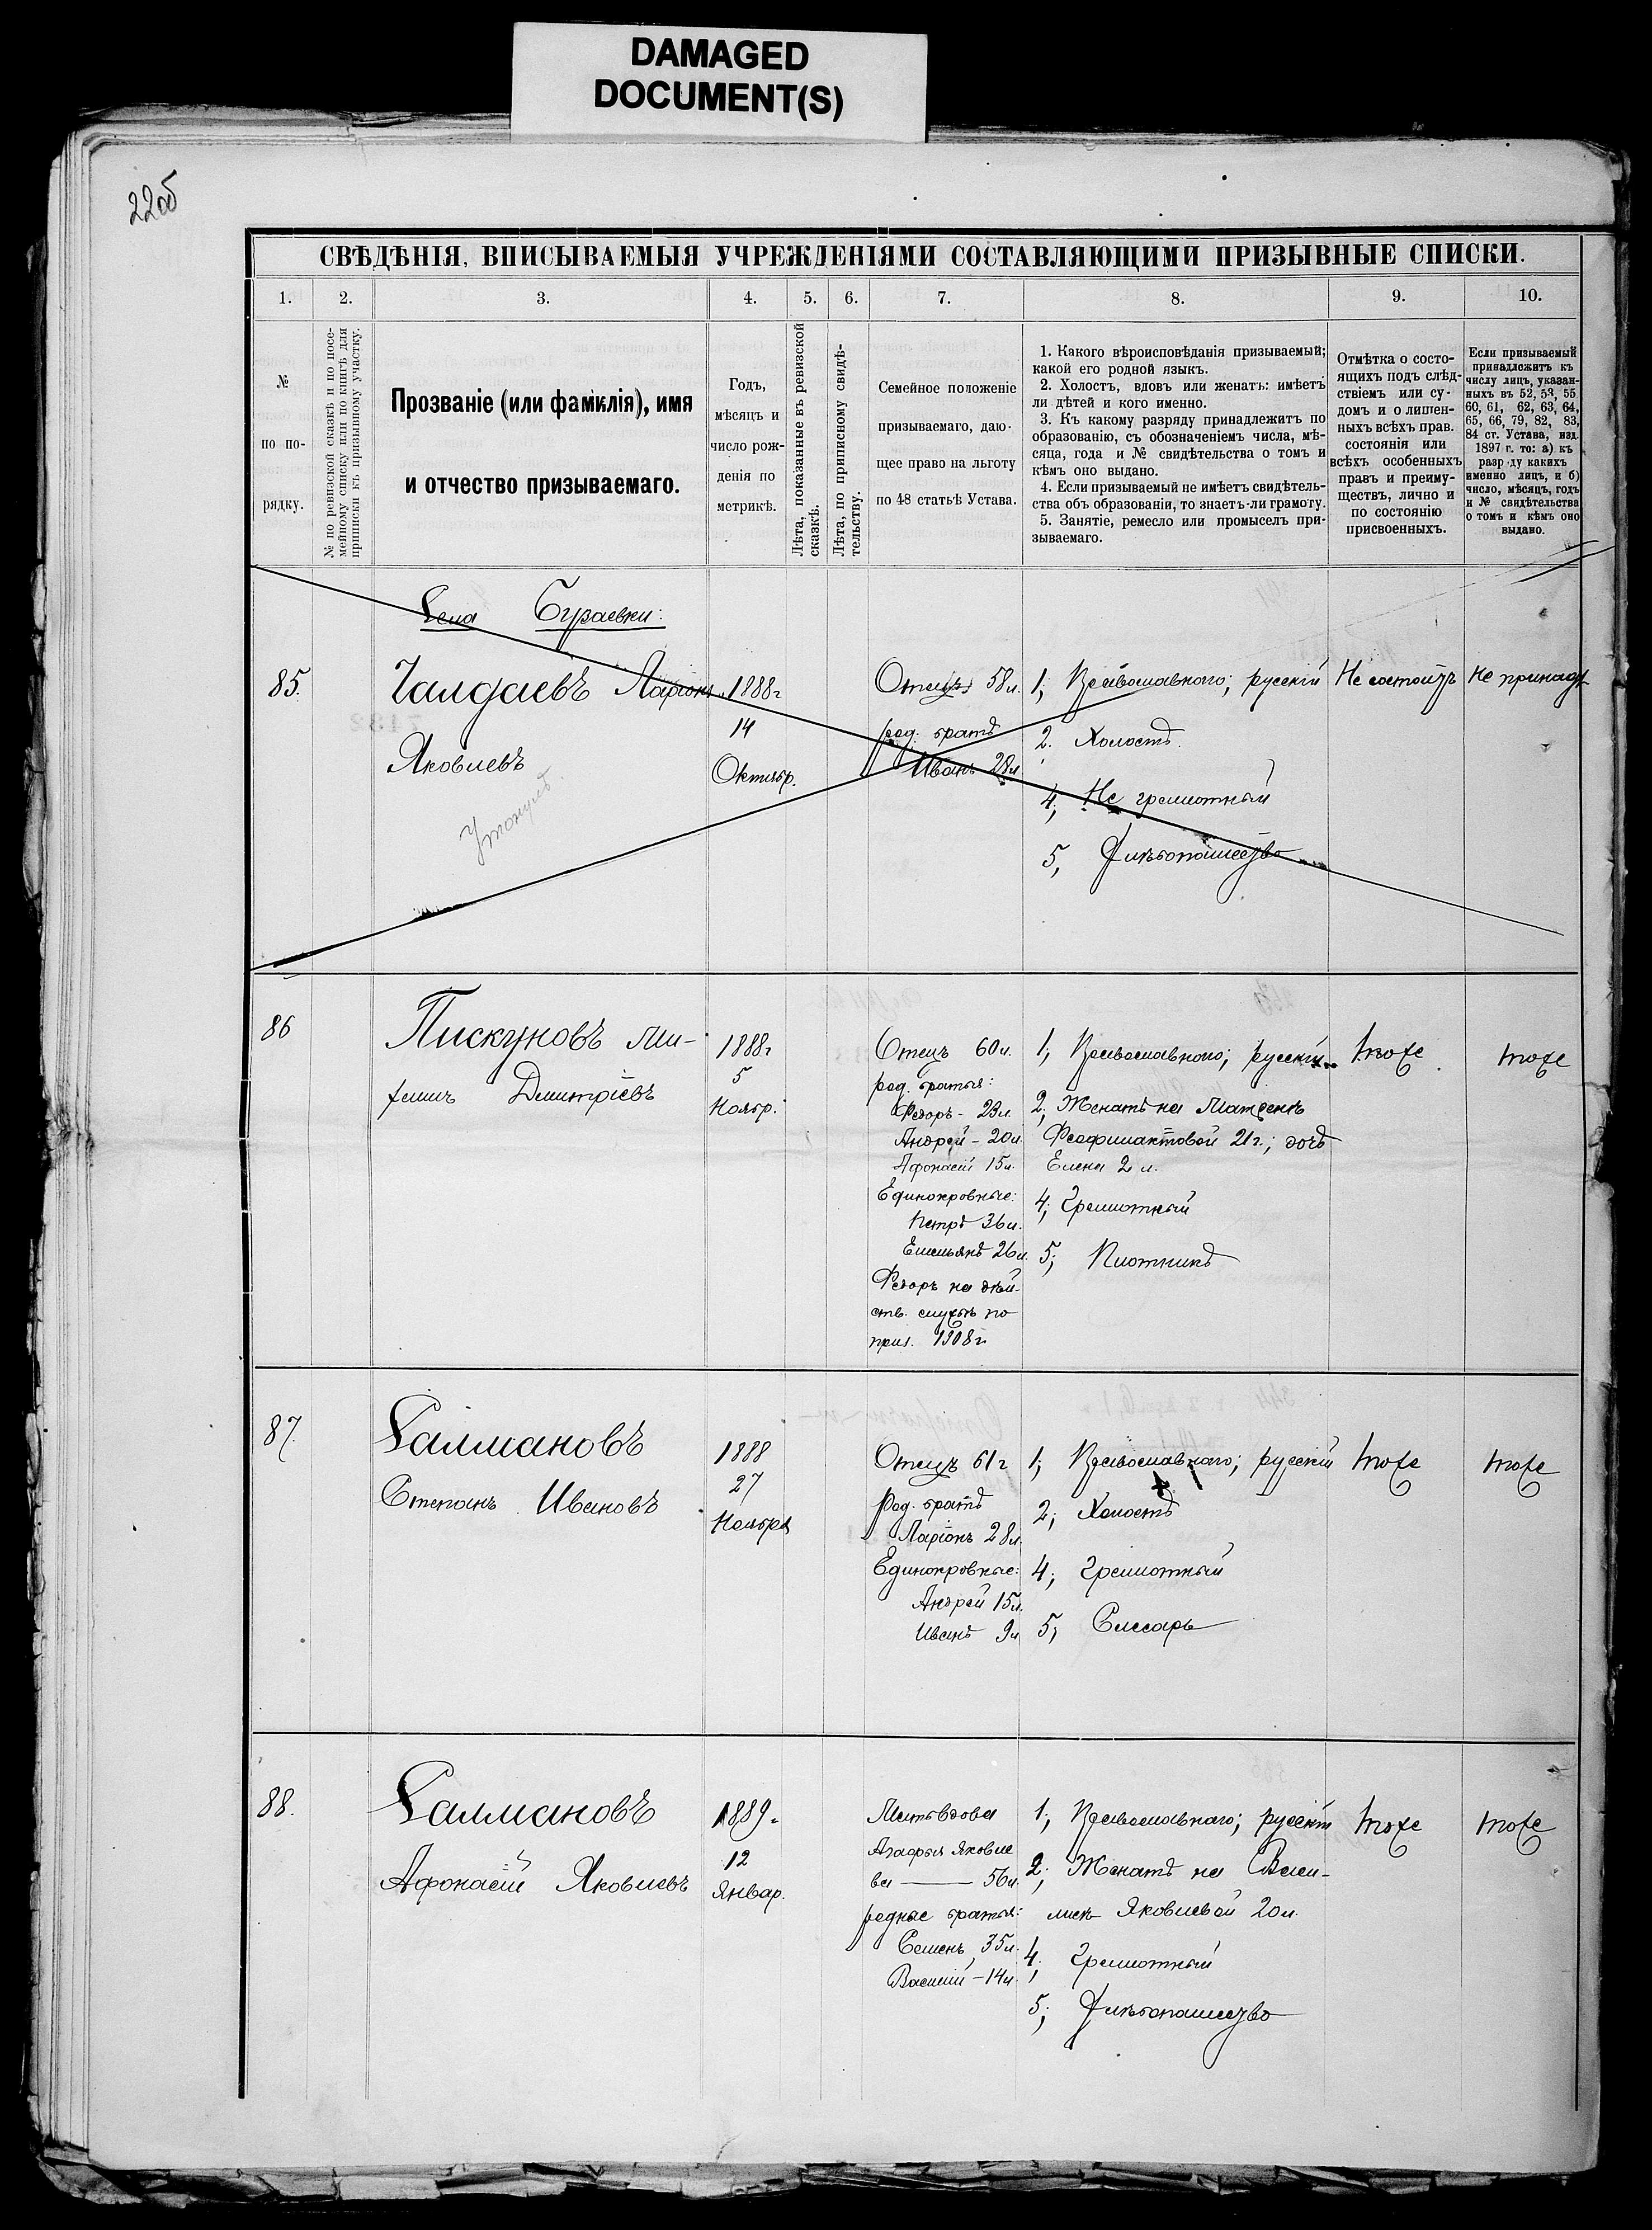 DAMAGED
DOCUMENT(S)
22об
СВѢДѢНІЯ, ВПИСЫВАЕМЫЯ УЧРЕЖДЕНІЯМИ СОСТАВЛЯЮЩИМИ ПРИЗЫВНЫЕ СПИСКИ.
1. 2. 3. 4. 5. 6. 7. 8. 9. 10.
№
по по-
рядку.
№ по ревизской сказкѣ и по посе-
мейному списку или по книгѣ для
приписки къ призывному участку.
Прозваніе (или фамилія), имя
и отчество призываемаго.
Годъ,
мѣсяцъ и
число рож-
денія по
метрикѣ.
Лѣта, показанные въ ревизской
сказкѣ.
Лѣта, по приписному свидѣ-
тельству.
Семейное положеніе
призываемаго, даю-
щее право на льготу
по 48 статьѣ Устава.
1. Какого вѣроисповѣданія призываемый;
какой его родной языкъ.
2. Холостъ, вдовъ или женатъ: имѣетъ
ли дѣтей и кого именно.
3. Къ какому разряду принадлежитъ по
образованію, съ обозначеніемъ числа, мѣ-
сяца, года и № свидѣтельства о томъ и
кѣмъ оно выдано.
4. Если призываемый не имѣетъ свидѣтель-
ства объ образованіи, то знаетъ-ли грамоту.
5. Занятіе, ремесло или промыселъ при-
зываемаго.
Отмѣтка о состо-
ящихъ подъ слѣд-
ствіемъ или су-
домъ и о лишен-
ныхъ всѣхъ прав.
состоянія или
всѣхъ особенныхъ
правъ и преиму-
ществъ, лично и
по состоянію
присвоенныхъ.
Если призываемый
принадлежитъ къ
числу лицъ, указан-
ныхъ въ 52, 53, 55
60, 61, 62, 63, 64,
65, 66, 79, 82, 83,
84 ст. Устава, изд.
1897 г. то: а) къ
разр ду какихъ
именно лицъ, и б)
число, мѣсяцъ, годъ
и № свидѣтельства
о томъ и кѣмъ оно
выдано.
Села Бураевки:
85.
Чалдаевъ Ларіонъ
Яковлевъ
Утонулъ
1888г
14
Октябр.
Отецъ 58л.
род. братъ
Иванъ 28л
1, Православнаго; русскій
2. Холостъ.
4, Не грамотный
5, Хлѣбопашество
Не состоитъ
Не принадл
86
Пискуновъ Ми-
Дмитріевъ
1888г
5
Ноябр.
Отецъ 60л.
род. братья:
Федоръ - 23л
Андрей - 20л.
Афонасій 15л.
Единокровные:
Петръ 36л.
Емельянъ 26л.
Федоръ на дѣй-
ств. службѣ по
приз. 1908г
1, Православнаго; русскій
2, Женатъ на Матренѣ
Феофилактовой 21г.; дочь
Елена 2 л.
4; Грамотный
5; Плотникъ
тоже
тоже
87
Салмановъ
Степанъ Ивановъ
1888
27
Ноября
Отецъ 61г
Род. братъ
Ларіонъ 28л.
Единокровные:
Андрей 15л.
Иванъ 9л
1; Православнаго; русскій
2; Холостъ
4; Грамотный
5; Слесарь
тоже
тоже
88.
Салмановъ
Афонасій Яковлевъ
1889г
12
Январ.
Мать вдова
Агафья Яковле
ва — 56л.
родные братья:
Семенъ 35л.
Василій - 14л.
1; Православнаго; русскій
2; Женатъ на Васи-
лисѣ Яковлевой 20л.
4; Грамотный
5; Хлѣбопашество
тоже
тоже